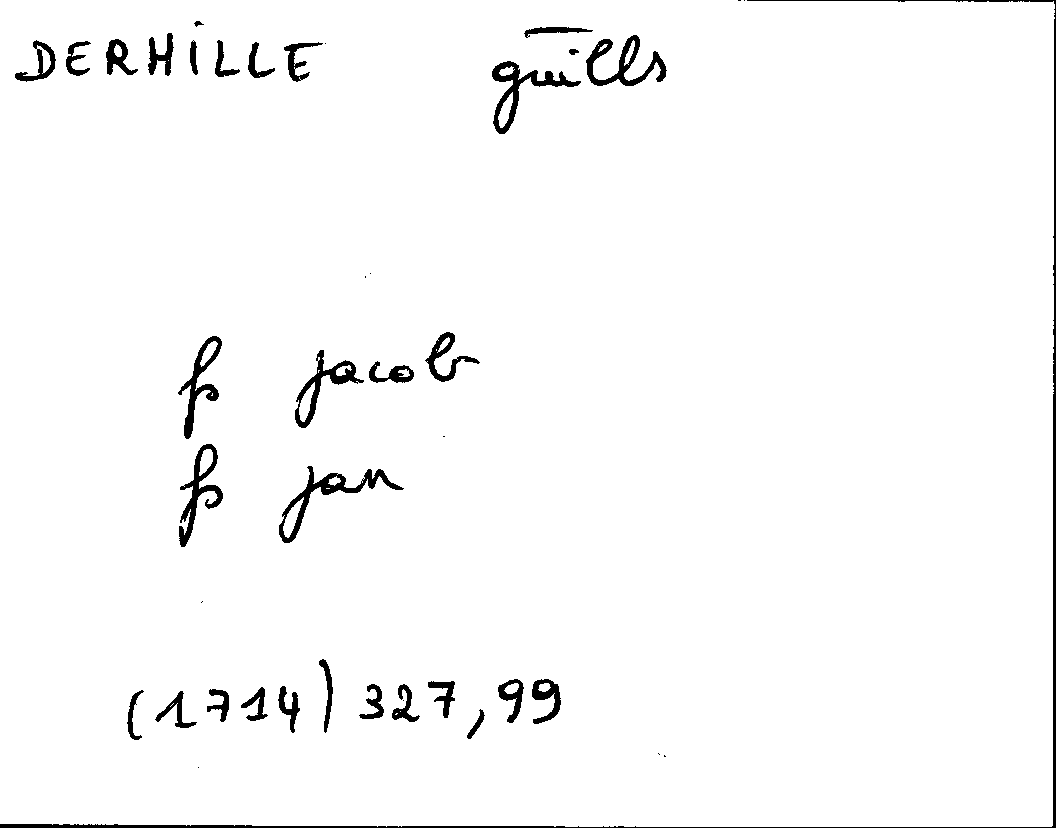 DERHILLE guills
fs jacob
fs jan
(1714) 327,99